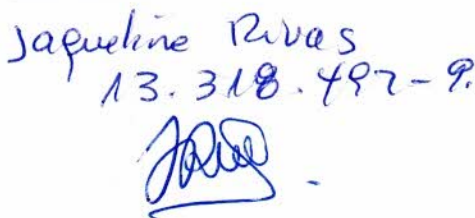 Jaqueline Rivas
13.318.497-9.